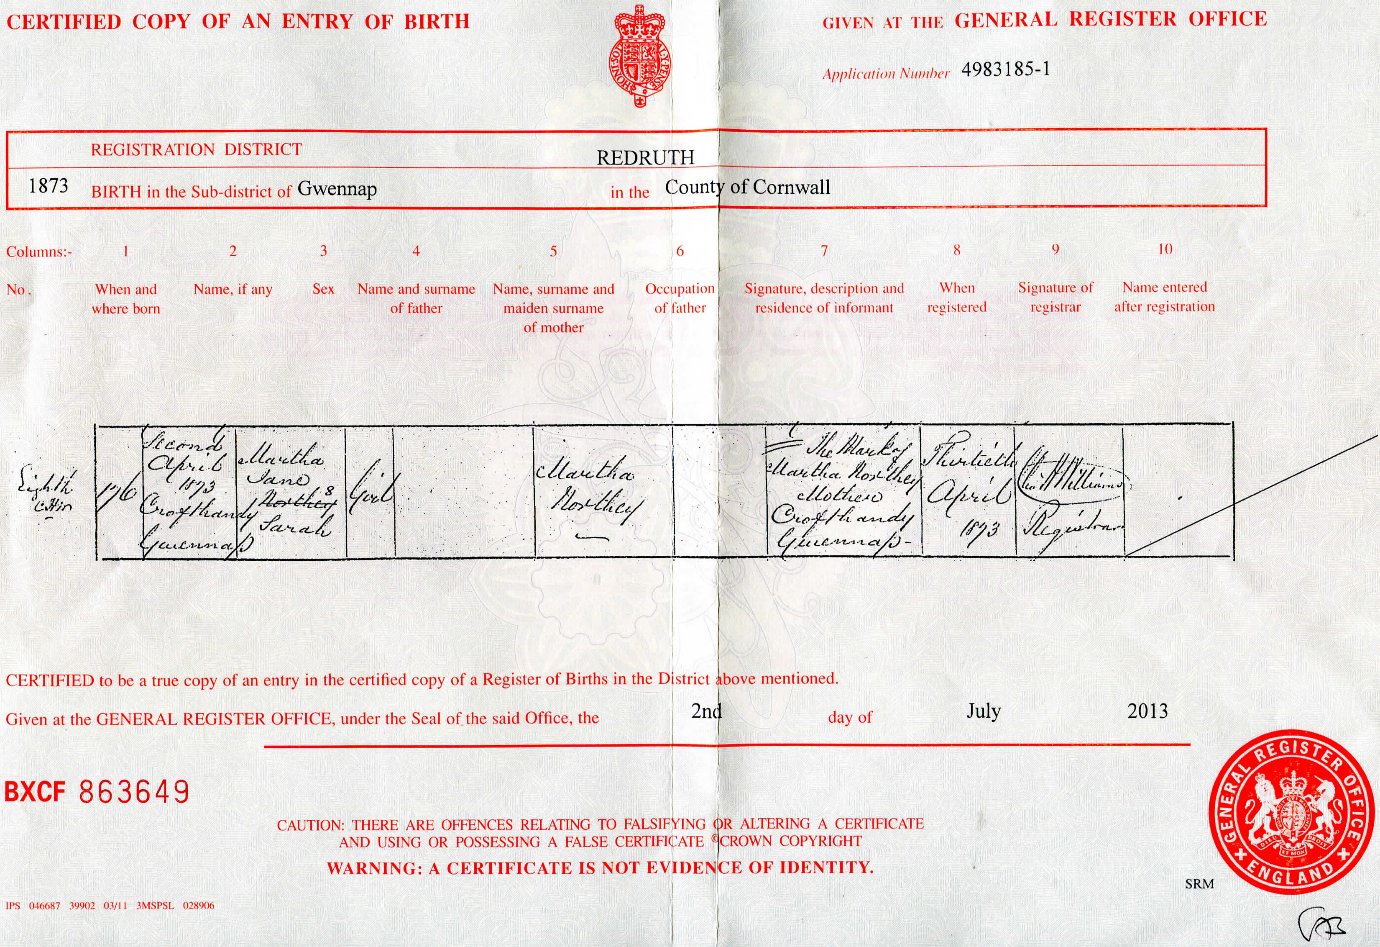 CERTIFIED COPY OF AN ENTRY OF BIRTH
GIVEN AT THE GENERAL REGISTER OFFICE
Application Number 4983185-1
REGISTRATION DISTRICT REDRUTH
1873 BIRTH in the Sub-district of Gwennap in the County of Cornwall
Columns:- 1 2 3 4 5 6 7 8 9 10
No. When and where born
Name, if any
Sex
Name and surname of father
Name, surname and maiden surname of mother
Occupation of father
Signature, description and residence of informant
When registered
Signature of registrar
Name entered after registration
Eighth
176
Second
April
1873
Crofthandy
Gwennap
Martha
Jane
Northey 8
Sarah
Girl
Martha
Northey
The Mark of
Martha Northey
Mother
Crofthandy
Gwennap
Thirtieth
April
1873
Williams
Registrar
CERTIFIED to be a true copy of an entry in the certified copy of a Register of Births in the District above mentioned.
Given at the GENERAL REGISTER OFFICE, under the Seal of the said Office, the 2nd day of July 2013
BXCF 863649
CAUTION: THERE ARE OFFENCES RELATING TO FALSIFYING OR ALTERING A CERTIFICATE
AND USING OR POSSESSING A FALSE CERTIFICATE ©CROWN COPYRIGHT
WARNING: A CERTIFICATE IS NOT EVIDENCE OF IDENTITY.
GENERAL REGISTER OFFICE
ENGLAND
SRM
IPS 046687 39902 03/11 3MSPSL 028906